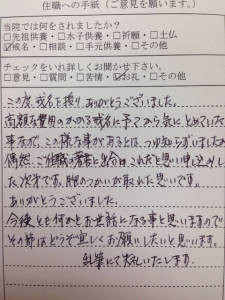 住職への手紙（ご意見を願います。）
当院では何をされましたか？
□先祖供養・□水子供養・□祈願・□土仏
☑戒名・□相談・□手元供養・□その他
チェックをいれ詳しくお聞かせ下さい。
□意見・□質問・□苦情・☑お礼・□その他
この度戒名を授り、ありがとうございました。
高額な費用のかかる戒名に予てから気にとめていた
事なので、この様な事があるとは、つゆ知らずいましたが
偶然、ご住職の著書と出合いこれだと思い申し込みし
た次第です。胸のつかいが取れた思いです。
ありがとうございます。
今後とも何かとお世話になる事と思いますので
その節はどうぞ宜しくお願いしたいと思います。
乱筆にて失礼いたします。